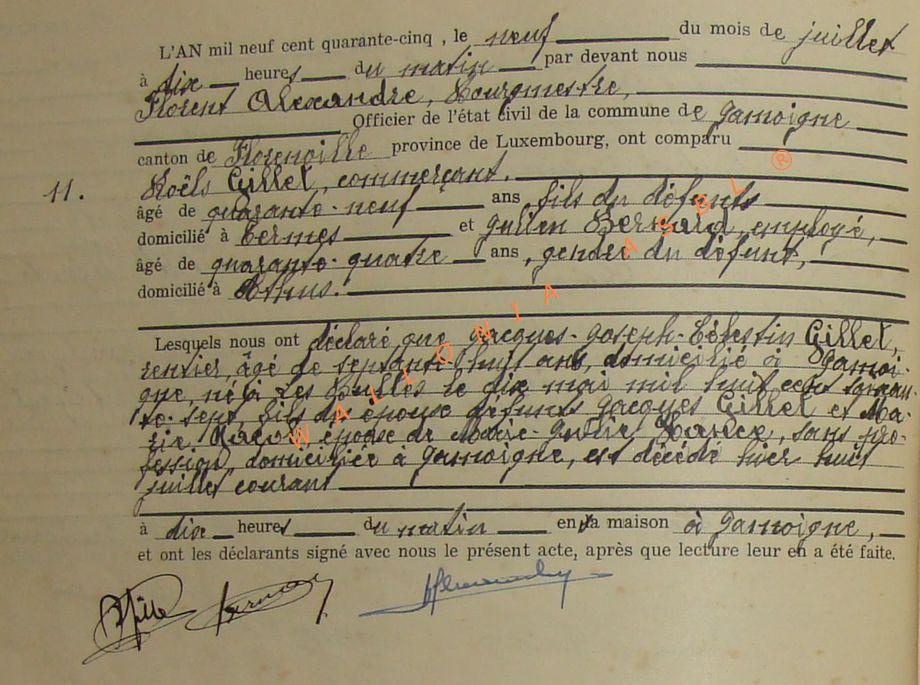 L'AN mil neuf cent quarante-cinq, le neuf du mois de juillet
à dix heures du matin par devant nous
Florent Alexandre, Bourgmestre,
Officier de l'état civil de la commune de Jamoigne
canton de Florenville province de Luxembourg, ont comparu
11. Noëls Gillet, commerçant.
âgé de quarante-neuf ans, fils du défunts
domicilié à Termes et Julien Bernard, employé,
âgé de quarante-quatre ans, gendre du défunt,
domicilié à Athus.
Lesquels nous ont déclaré que Jacques-Joseph-Célestin Gillet,
rentier, âgé de septante-huit ans, domicilié à Jamoi-
gne, né à Les Bulles le dix mai mil huit cent soixan-
te-sept, fils de époux défunts Jacques Gillet et Ma-
rie époux de Marie- sans pro-
fession, domiciliée à Jamoigne, est décédé hier huit
juillet courant
à dix heures du matin en sa maison à Jamoigne,
et ont les déclarants signé avec nous le présent acte, après que lecture leur en a été faite.
WALLONIA ASBL ®